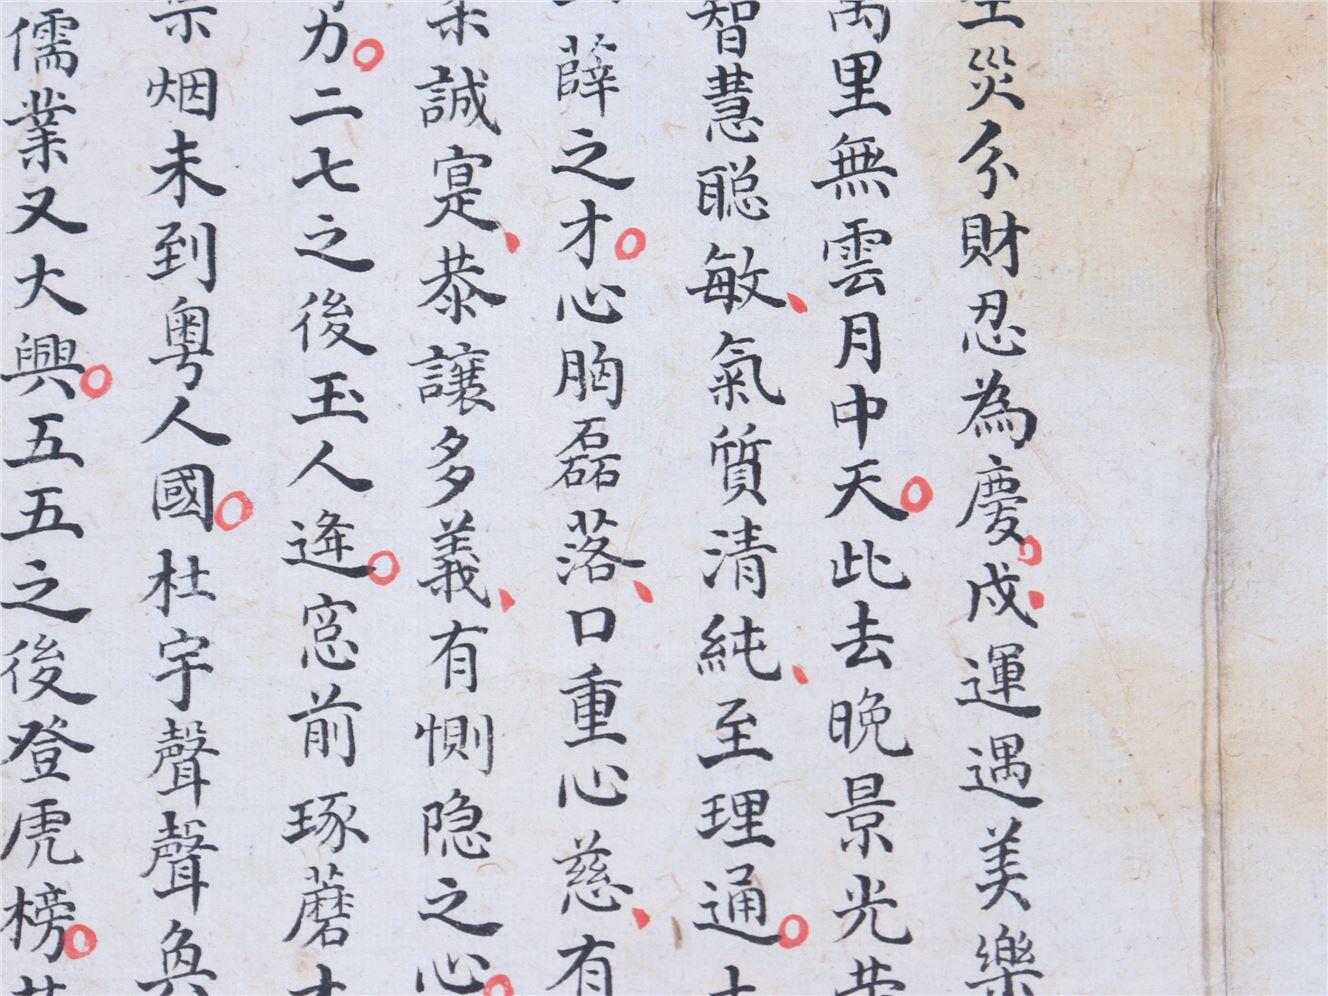 災分財忍為慶。戍運遇美樂
里無雲月中天。此去晚景光
智慧聪敏、氣質清純、至理通。
薛之才。心胸磊落、口重心慈、有
誠寔、恭讓多義、有惻隐之心。
力。二七之後玉人逄。窓前琢蘑
烟未到粤人國。杜宇聲聲奐
儒業又大興。五五之後登虎榜。